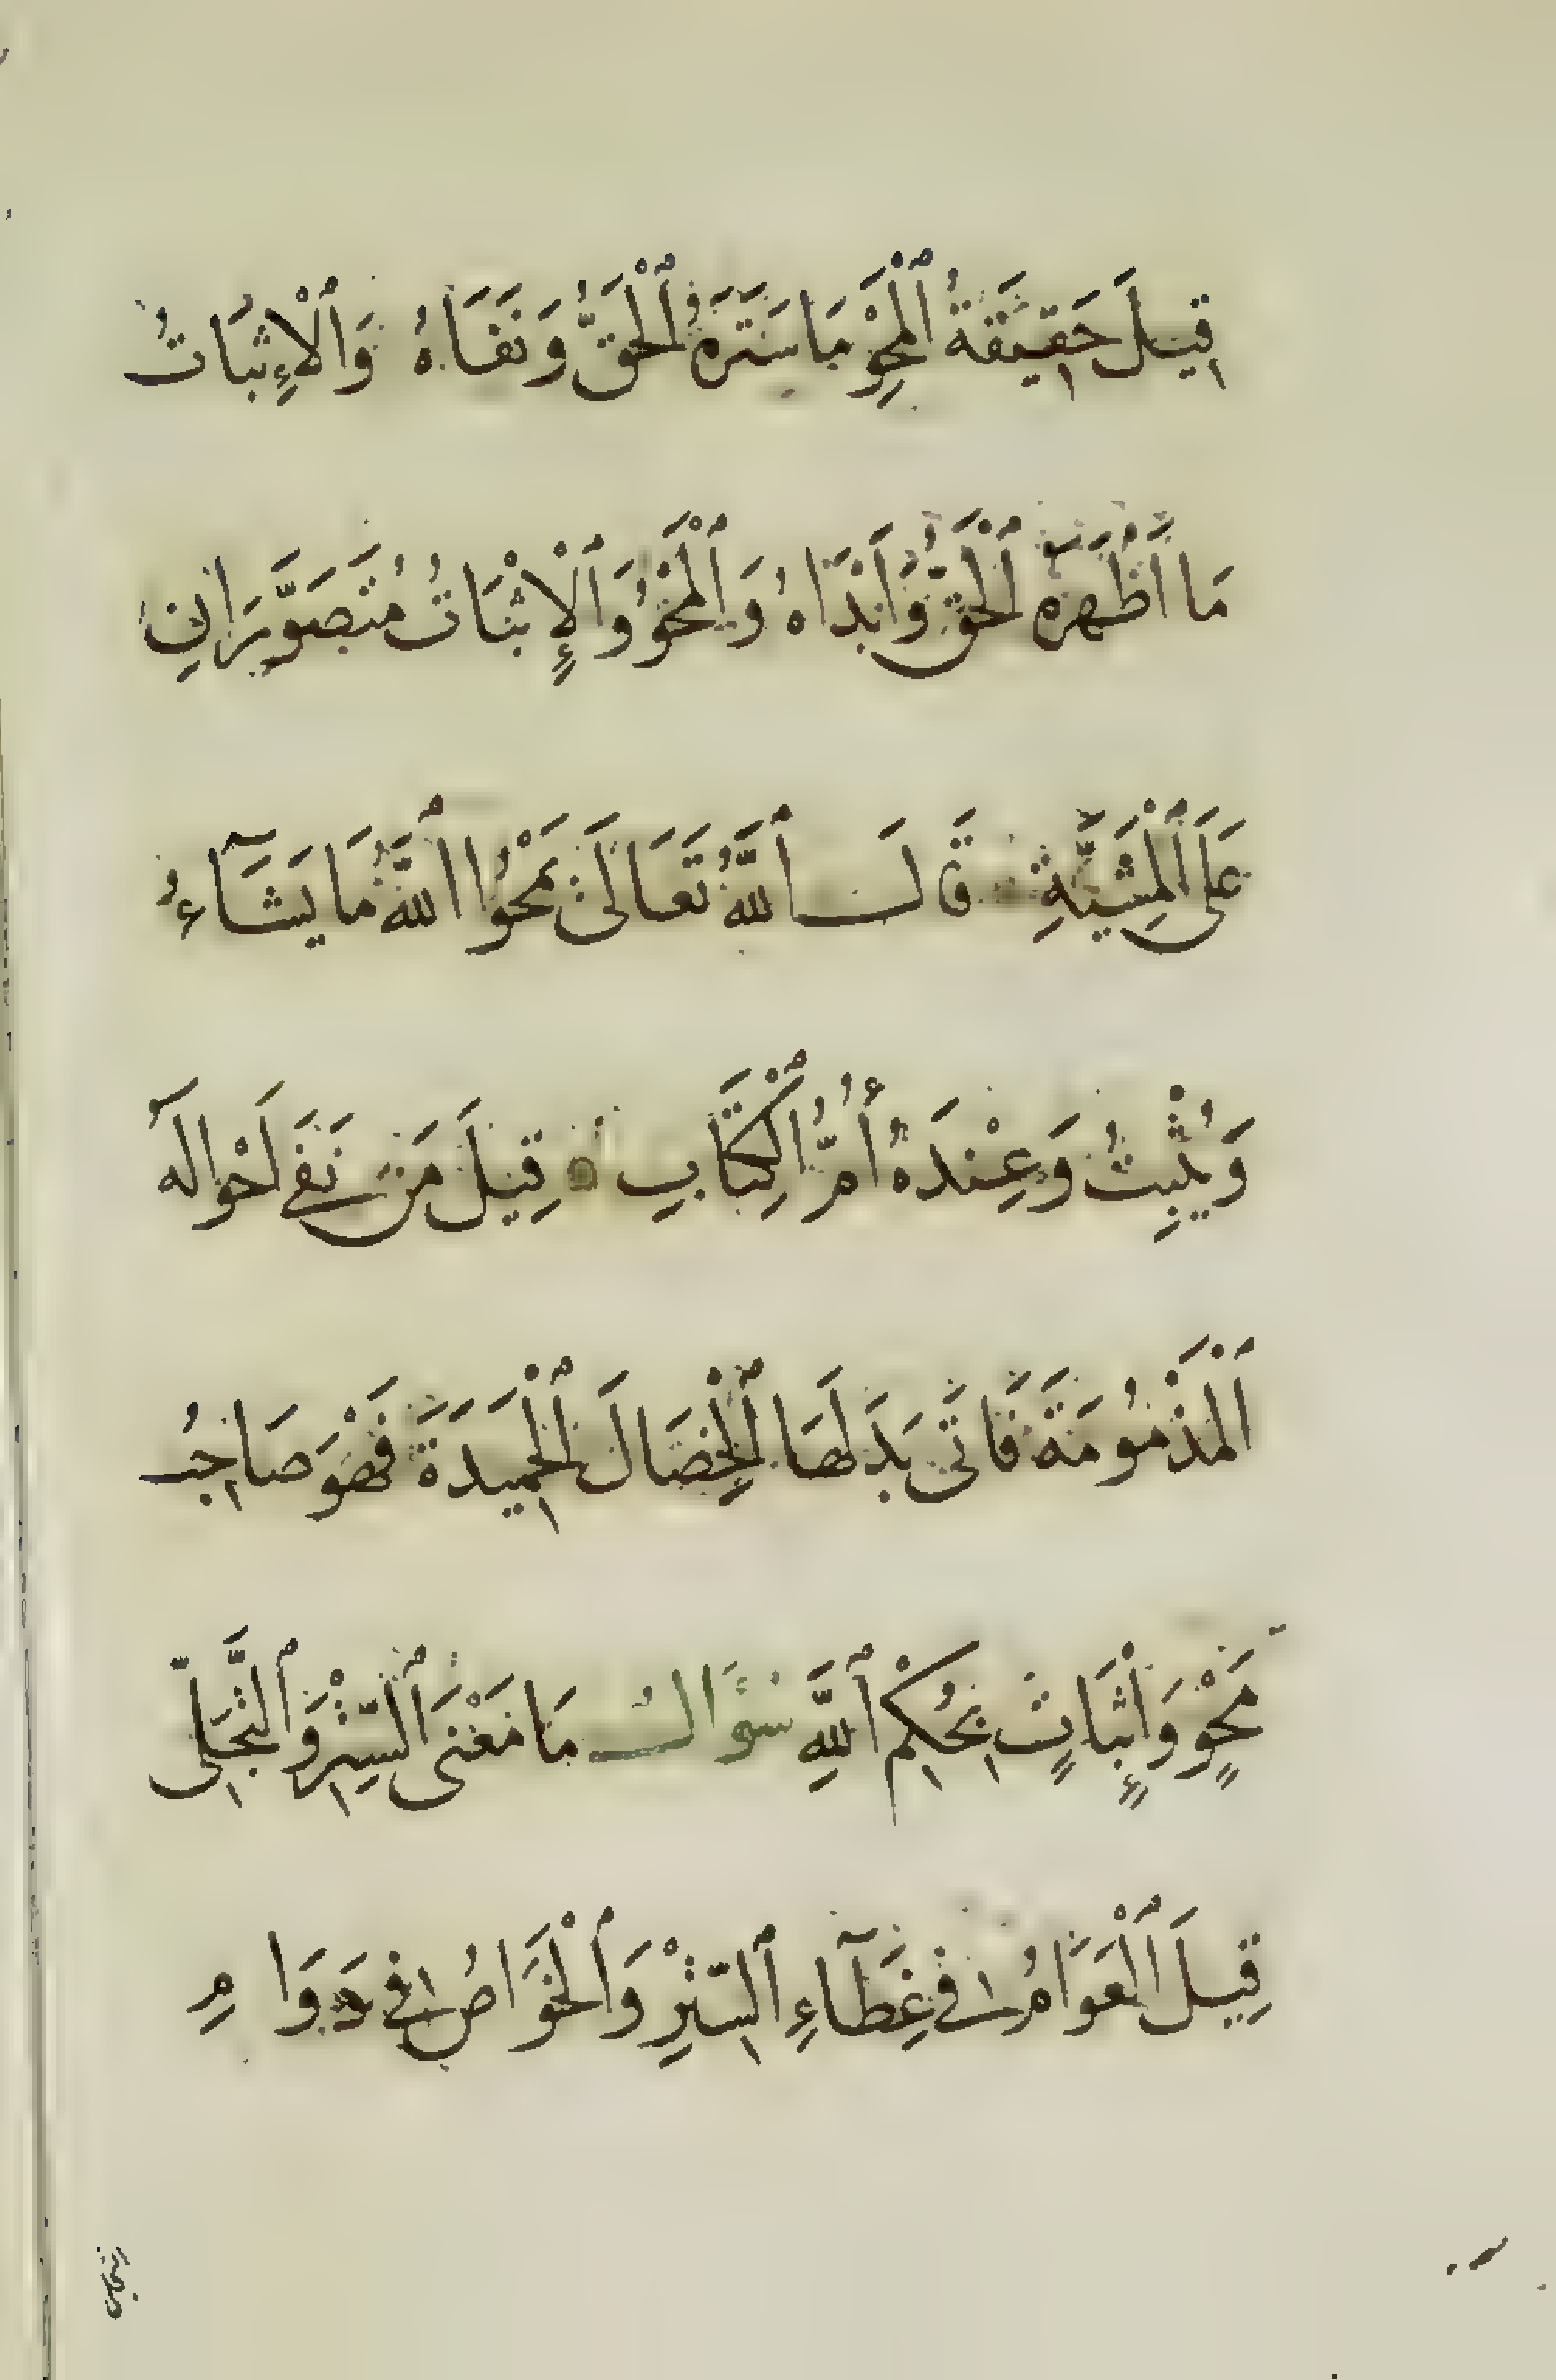 قِيلَ حَقِيقَةُ ٱلْمَحْوِ مَا سَتَرَهُ ٱلْحَقُّ وَنَفَاهُ وَٱلْإِثْبَاتُ
مَا أَظْهَرَهُ ٱلْحَقُّ وَأَبْدَاهُ وَٱلْمَحْوُ وَٱلْإِثْبَاتُ مُتَصَوَّرَانِ
عَلَى ٱلْمَشِيَّةِ قَالَ ٱللَّهُ تَعَالَىٰ يَمْحُوا ٱللَّهُ مَا يَشَآءُ
وَيُثْبِتُ وَعِنْدَهُ أُمُّ ٱلْكِتَابِ قِيلَ مَنْ نَفَى أَحْوَالَهُ
ٱلْمَذْمُومَةَ فَأَتَى بَدَلَهَا ٱلْخِصَالَ ٱلْحَمِيدَةَ فَهُوَ صَاحِبُ
مَحْوٍ وَإِثْبَاتٍ بِحُكْمِ ٱللَّهِ سُؤَالٌ مَا مَعْنَى ٱلسِّتْرِ وَٱلتَّجَلِّي
قِيلَ ٱلْعَوَامُ فِي غِطَآءِ ٱلسِّتْرِ وَٱلْخَوَاصُ فِي دَوَامِ